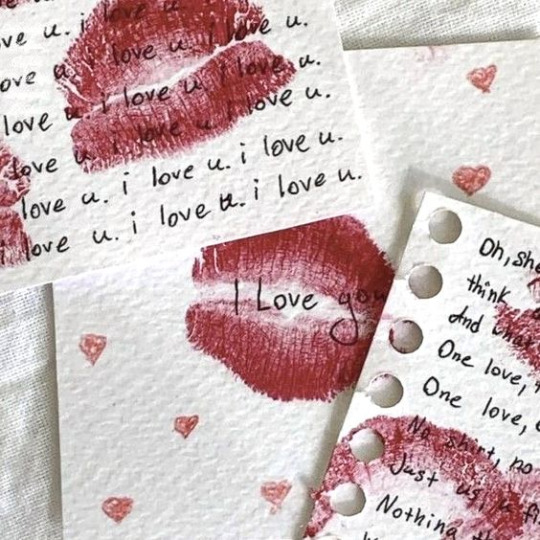 ve u. i love u.
ove u. i love u. i love u.
love u. i love u. i love u.
love u. i love u. i love u.
love u. i love u. i love u.
i love u. i love u. i love u.
I Love you
Oh, she
think
And what
One love,
One love,
No shirt, no
Just us, u
Nothing th